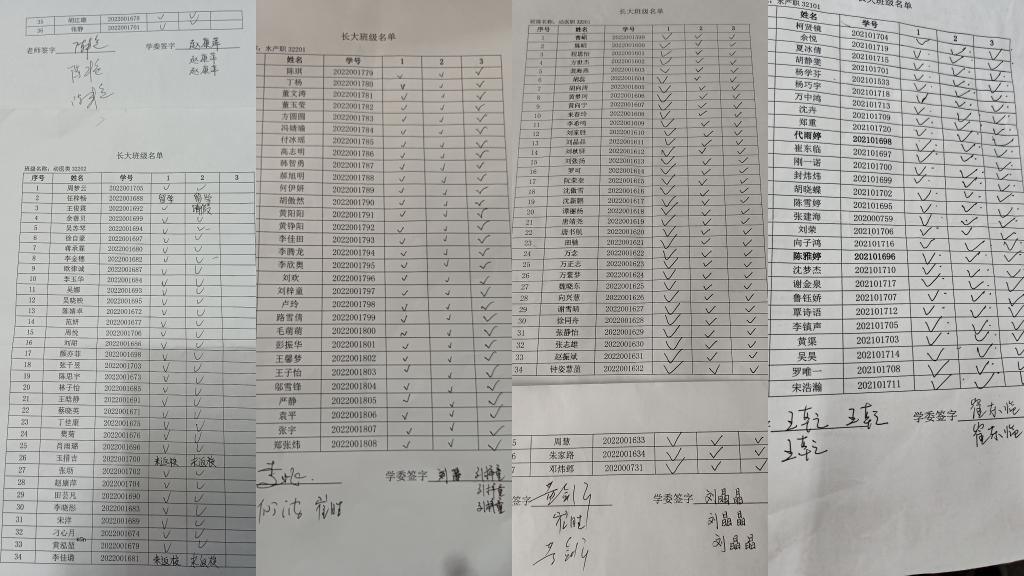 35 胡江珊 2022001678 ✓ ✓
36 张静 2022001701 ✓ ✓
老师签字 学委签字 赵康萍
赵康萍
赵康萍
长大班级名单
班级名称:动医类32202
序号 姓名 学号 1 2 3
1 周梦云 2022001705 ✓ ✓
2 任梓畅 2022001688 留学 留学
3 王俊茜 2022001692 ✓ 请假
4 余碧贝 2022001699 ✓ ✓
5 吴苏琴 2022001694 ✓ ✓
6 徐自豪 2022001697 ✓ ✓
7 蒋承霖 2022001680 ✓ ✓
8 李金穗 2022001682 ✓ ✓
9 欧律诚 2022001687 ✓ ✓
10 李玉华 2022001684 ✓ ✓
11 吴娜 2022001693 ✓ ✓
12 吴晓映 2022001695 ✓ ✓
13 陈靖卓 2022001672 ✓ ✓
14 范妍 2022001677 ✓ ✓
15 周悦 2022001706 ✓ ✓
16 刘甜 2022001686 ✓ ✓
17 颜亦菲 2022001698 ✓ ✓
18 张子昱 2022001703 ✓ ✓
19 陈思宇 2022001673 ✓ ✓
20 林子怡 2022001685 ✓ ✓
21 王晗静 2022001691 ✓ ✓
22 蔡晓英 2022001671 ✓ ✓
23 丁佳康 2022001675 ✓ ✓
24 樊菊 2022001676 ✓ ✓
25 肖雨璐 2022001696 ✓ ✓
26 王措吉 2022001700 未返校 未返校
27 张玥 2022001702 ✓ ✓
28 赵康萍 2022001704 ✓ ✓
29 田芸凡 2022001690 ✓ ✓
30 李晓彤 2022001683 ✓ ✓
31 朱洋 2022001689 ✓ ✓
32 刁心月 2022001674 ✓ ✓
33 黄泓堃 2022001679 ✓ ✓
34 李佳璐 2022001681 未返校 未返校
长大班级名单
:水产职32201
姓名 学号 1 2 3
陈琪 2022001779 ✓ ✓ ✓
丁杨 2022001780 ✓ ✓ ✓
董文涛 2022001781 ✓ ✓ ✓
董玉莹 2022001782 ✓ ✓ ✓
方圆圆 2022001783 ✓ ✓ ✓
冯婧瑜 2022001784 ✓ ✓ ✓
付冰瑶 2022001785 ✓ ✓ ✓
高志明 2022001786 ✓ ✓ ✓
韩智勇 2022001787 ✓ ✓ ✓
郝旭明 2022001788 ✓ ✓ ✓
何伊妍 2022001789 ✓ ✓ ✓
胡傲然 2022001790 ✓ ✓ ✓
黄阳阳 2022001791 ✓ ✓ ✓
黄铮阳 2022001792 ✓ ✓ ✓
李佳田 2022001793 ✓ ✓ ✓
李腾龙 2022001794 ✓ ✓ ✓
李欣奥 2022001795 ✓ ✓ ✓
刘欢 2022001796 ✓ ✓ ✓
刘梓童 2022001797 ✓ ✓ ✓
卢玲 2022001798 ✓ ✓ ✓
路雪倩 2022001799 ✓ ✓ ✓
毛萌萌 2022001800 ✓ ✓ ✓
彭振华 2022001801 ✓ ✓ ✓
王馨梦 2022001802 ✓ ✓ ✓
王子怡 2022001803 ✓ ✓ ✓
邬雪锋 2022001804 ✓ ✓ ✓
严静 2022001805 ✓ ✓ ✓
袁平 2022001806 ✓ ✓ ✓
张宇 2022001807 ✓ ✓ ✓
郑张炜 2022001808 ✓ ✓ ✓
学委签字 刘梓童
刘梓童
崔胜 刘梓童
长大班级名单
班级名称:动医职32201
序号 姓名 学号 1 2 3
1 曹硕 2022001600 ✓ ✓ ✓
2 陈昭 2022001601 ✓ ✓ ✓
3 程思怡 2022001602 ✓ ✓ ✓
4 方世杰 2022001603 ✓ ✓ ✓
5 2022001603 ✓ ✓ ✓
6 胡蕊 2022001604 ✓ ✓ ✓
7 胡向涛 2022001605 ✓ ✓ ✓
8 黄梦珂 2022001606 ✓ ✓ ✓
9 黄向宁 2022001607 ✓ ✓ ✓
10 来春玲 2022001608 ✓ ✓ ✓
11 李希鸣 2022001609 ✓ ✓ ✓
12 刘家胜 2022001610 ✓ ✓ ✓
13 刘晶晶 2022001611 ✓ ✓ ✓
14 刘秋妍 2022001612 ✓ ✓ ✓
15 刘张汤 2022001613 ✓ ✓ ✓
16 罗可 2022001614 ✓ ✓ ✓
17 阮荣奎 2022001615 ✓ ✓ ✓
18 沈傲雪 2022001616 ✓ ✓ ✓
19 沈新鹏 2022001617 ✓ ✓ ✓
20 谭丽杨 2022001618 ✓ ✓ ✓
21 唐靖尧 2022001619 ✓ ✓ ✓
22 唐书航 2022001620 ✓ ✓ ✓
23 田驰 2022001621 ✓ ✓ ✓
24 万念 2022001622 ✓ ✓ ✓
25 万正志 2022001623 ✓ ✓ ✓
26 万紫梦 2022001624 ✓ ✓ ✓
27 魏晓东 2022001625 ✓ ✓ ✓
28 向兴慧 2022001626 ✓ ✓ ✓
29 谢雪晴 2022001627 ✓ ✓ ✓
30 徐同舟 2022001628 ✓ ✓ ✓
31 张静怡 2022001629 ✓ ✓ ✓
32 张志雄 2022001630 ✓ ✓ ✓
33 赵振斌 2022001631 ✓ ✓ ✓
34 钟姿慧茵 2022001632 ✓ ✓ ✓
5 周慧 2022001633 ✓ ✓ ✓
6 朱家路 2022001634 ✓ ✓ ✓
7 邓炜郎 202000731 ✓ ✓ ✓
签字 学委签字 刘晶晶
崔胜 刘晶晶
刘晶晶
长大班级名单
:水产职32101
姓名 学号 1 2 3
柯贤镜 202101704 ✓ ✓ ✓
余悦 202101719 ✓ ✓ ✓
夏冰倩 202101715 ✓ ✓ ✓
胡静雯 202101701 ✓ ✓ ✓
杨学芬 202101533 ✓ ✓ ✓
杨巧宇 202101718 ✓ ✓ ✓
万中鸿 202101713 ✓ ✓ ✓
沈卉 202101709 ✓ ✓ ✓
郑重 202101720 ✓ ✓ ✓
代雨婷 2021016981 ✓ ✓ ✓
崔东临 202101697 ✓ ✓ ✓
刚一诺 202101700 ✓ ✓ ✓
封炜炜 202101699 ✓ ✓ ✓
胡晓蝶 202101702 ✓ ✓ ✓
陈雪婷 202101695 ✓ ✓ ✓
张建海 202000759 ✓ ✓ ✓
刘荣 202101706 ✓ ✓ ✓
向子鸿 202101716 ✓ ✓ ✓
陈雅婷 202101696 ✓ ✓ ✓
沈梦杰 202101710 ✓ ✓ ✓
谢金泉 202101717 ✓ ✓ ✓
鲁钰娇 202101707 ✓ ✓ ✓
覃诗语 202101712 ✓ ✓ ✓
李镇声 202101705 ✓ ✓ ✓
黄渠 202101703 ✓ ✓ ✓
吴昊 202101714 ✓ ✓ ✓
罗唯一 202101708 ✓ ✓ ✓
宋浩瀚 202101711 ✓ ✓ ✓
学委签字 崔东临
崔东临